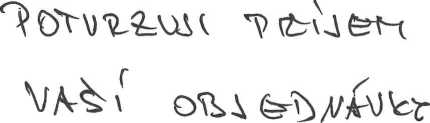 POTVRZUJI PŘÍJEM
VAŠÍ OBJEDNÁVKY